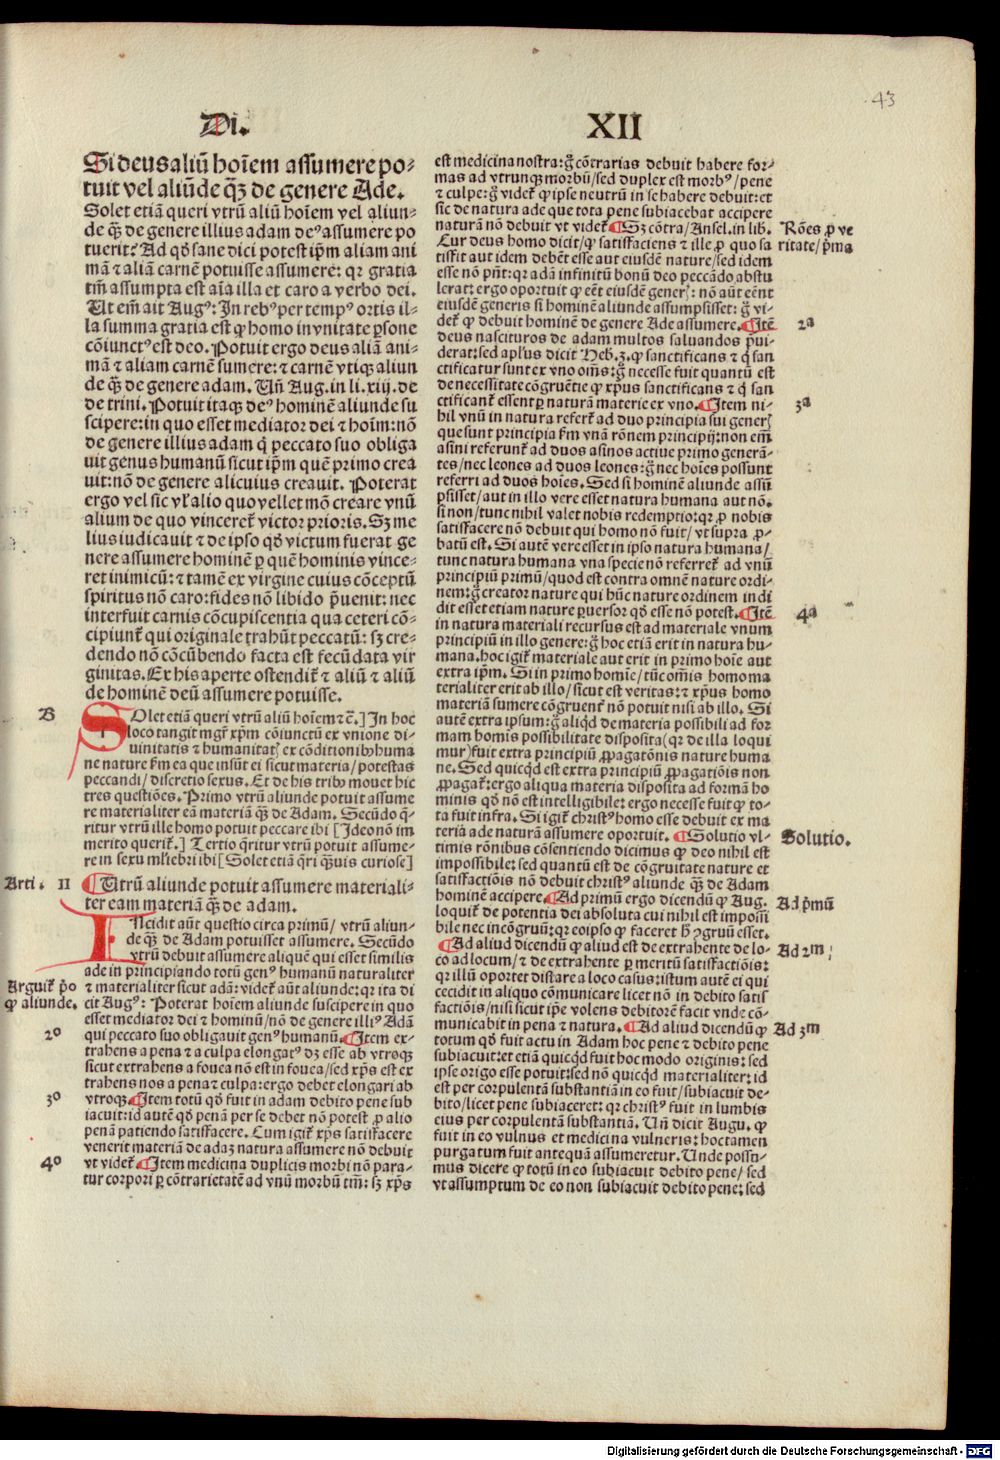 43
Di.
XII
Si deus aliũ hoĩem assumere po⸗
tuit vel aliũde q̃ꝫ de genere Ade.
Solet etiã queri vtrũ aliũ hoĩem vel aliun⸗
de q̃ꝫ de genere illius adam deꝰ assumere po
tuerit? Ad qđ sane dici potest ip̃m aliam ani
mã ⁊ aliã carnẽ potuisse assumere: qr gratia
tm̃ assumpta est aĩa illa et caro a verbo dei.
Ut em̃ ait Augꝰ: In rebꝰ per tempꝰ ortis il⸗
la summa gratia est ꝙ homo in vnitate ꝑsone
cõiunctꝰ est deo. Potuit ergo deus aliã ani⸗
mã ⁊ aliam carnẽ sumere: ⁊ carnẽ vtiqꝫ aliun
de q̃ꝫ de genere adam. Uñ Aug. in li. xiij. de
de trini. Potuit itaqꝫ deꝰ hominẽ aliunde su
scipere: in quo esset mediator dei ⁊ hoĩm: nõ
de genere illius adam q̇ peccato suo obliga
uit genus humanũ sicut ip̃m quẽ primo crea
uit: nõ de genere alicuius creauit. Poterat
ergo vel sic vl̓ alio quo vellet mõ creare vnũ
alium de quo vinceret̃ victor prioris. Sꝫ me
lius iudicauit ⁊ de ipso qđ victum fuerat ge
nere assumere hominẽ ꝑ quẽ hominis vince⸗
ret inimicũ: ⁊ tamẽ ex virgine cuius cõceptũ
spiritus nõ caro: fides nõ libido p̃uenit: nec
interfuit carnis cõcupiscentia qua ceteri cõ⸗
cipiunt̃ qui originale trahũt peccatũ: sꝫ cre⸗
dendo nõ cõcũbendo facta est fecũdata vir
ginitas. Ex his aperte ostendit̃ ⁊ aliũ ⁊ aliũ
de hominẽ deũ assumere potuisse.
B
SOlet etiã queri vtrũ aliũ hoĩem ⁊c̃.] In hoc
loco tangit mgr̃ xp̃m cõiunctũ ex vnione di⸗
uinitatis ⁊ humanitatꝭ ex cõditionibꝰ huma
ne nature ẜm ea que insũt ei sicut materia/ potestas
peccandi/ discretio sexus. Et de his tribꝰ mouet hic
tres questiões. Primo vtrũ aliunde potuit assume
re materialiter eã materiã q̃ꝫ de Adam. Secũdo q̄⸗
ritur vtrũ ille homo potuit peccare ibi [Ideo nõ im
merito querit̃.] Tertio q̄ritur vtrũ potuit assume⸗
re in sexu ml̓iebri ibi [Solet etiã q̄ri q̃uis curiose]
Arti. II
¶ Utrũ aliunde potuit assumere materiali⸗
ter eam materiã q̃ꝫ de adam.
INcidit aũt questio circa primũ/ vtrũ aliun⸗
de q̃ꝫ de Adam potuisset assumere. Secũdo
vtrũ debuit assumere aliquẽ qui esset similis
ade in principiando totũ genꝰ humanũ naturaliter
Arguit̃ p̃o
ꝙ aliunde.
⁊ materialiter sicut adã: videt̃ aũt aliunde: qr ita di
cit Augꝰ: Poterat hoĩem aliunde suscipere in quo
esset mediator dei ⁊ hominũ/ nõ de genere illiꝰ Adã
2º
qui peccato suo obligauit genꝰ humanũ. ¶ Item ex⸗
trahens a pena ⁊ a culpa elongatꝰ dꝫ esse ab vtroqꝫ
sicut extrahens a fouea nõ est in fouea/ sed xp̃s est ex
trahens nos a pena ⁊ culpa: ergo debet elongari ab
3º
vtroqꝫ. ¶ Item totũ qđ fuit in adam debito pene sub
iacuit: id autẽ qđ penã per se debet nõ potest ꝓ alio
penã patiendo satisfacere. Cum igit̃ xp̃s satisfacere
venerit materiã de adaꝫ natura assumere nõ debuit
4º
vt videt̃. ¶ Item medicina duplicis morbi nõ para⸗
tur corpori ꝑ cõtrarietatẽ ad vnũ morbũ tm̃: sꝫ xp̃s
est medicina nostra: g̊ cõtrarias debuit habere for⸗
mas ad vtrunqꝫ morbũ/ sed duplex est morbꝰ/ pene
⁊ culpe: g̊ videt̃ ꝙ ipse neutrũ in se habere debuit: et
sic de natura ade que tota pene subiacebat accipere
naturã nõ debuit vt videt̃. ¶ Sꝫ cõtra/ Ansel. in lib.
Rões ꝓ ve
ritate/ p̃ma
Cur deus homo dicit/ ꝙ satisfaciens ⁊ ille ꝓ quo sa
tisfit aut idem debẽt esse aut eiusdẽ nature/ sed idem
esse nõ pñt: qr adã infinitũ bonũ deo peccãdo abstu
lerat: ergo oportuit ꝙ eẽt eiusdẽ generꝭ: nõ aũt eẽnt
eiusdẽ generis si hominẽ aliunde assumpsisset: g̊ vi⸗
det̃ ꝙ debuit hominẽ de genere Ade assumere. ¶ Itẽ
2ª
deus nascituros de adam multos saluandos p̃ui⸗
derat: sed apl̓us dicit Heb. 2. ꝙ sanctificans ⁊ q̇ san
ctificatur sunt ex vno om̃s: g̊ necesse fuit quantũ est
de necessitate cõgruẽtie ꝙ xp̃us sanctificans ⁊ q̇ san
ctificant̃ essent ꝑ naturã materie ex vno. ¶ Item ni⸗
3ª
hil vnũ in natura refert̃ ad duo principia sui generꝭ
que sunt principia ẜm vnã rõnem principij: non em̃
asini referunt̃ ad duos asinos actiue primo generã⸗
tes/ nec leones ad duos leones: g̊ nec hoĩes possunt
referri ad duos hoĩes. Sed si hominẽ aliunde assũ
psisset/ aut in illo vere esset natura humana aut nõ.
si non/ tunc nihil valet nobis redemptio: qr ꝓ nobis
satisfacere nõ debuit qui homo nõ fuit/ vt supra ꝓ⸗
batũ est. Si autẽ vere esset in ipso natura humana/
tunc natura humana vna specie nõ referret̃ ad vnũ
principiũ primũ/ quod est contra omnẽ nature ordi⸗
nem: g̊ creator nature qui hũc nature ordinem indi
dit esset etiam nature ꝑuersor qđ esse nõ potest. ¶ Itẽ
4ª
in natura materiali recursus est ad materiale vnum
principiũ in illo genere: g̊ hoc etiã erit in natura hu⸗
mana. hoc igit̃ materiale aut erit in primo hoĩe aut
extra ip̃m. Si in primo homĩe/ tũc om̃is homo ma
terialiter erit ab illo/ sicut est veritas: ⁊ xp̃us homo
materiã sumere cõgruent̃ nõ potuit nisi ab illo. Si
autẽ extra ipsum: g̊ aliqđ de materia possibili ad for
mam homis possibilitate disposita (qr de illa loqui
mur) fuit extra principiũ ꝓpagatõnis nature huma
ne. Sed quicqđ est extra principiũ ꝓpagatiõis non
ꝓpagat̃: ergo aliqua materia disposita ad formã ho
minis qđ nõ est intelligibile: ergo necesse fuit ꝙ to⸗
ta fuit infra. Si igit̃ christꝰ homo esse debuit ex ma
teria ade naturã assumere oportuit. ¶ Solutio vl⸗
Solutio.
timis rõnibus cõsentiendo dicimus ꝙ deo nihil est
impossibile: sed quantũ est de cõgruitate nature et
satisfactiõis nõ debuit christꝰ aliunde q̃ꝫ de Adam
hominẽ accipere. ¶ Ad primũ ergo dicendũ ꝙ Aug.
Ad p̃mũ
loquit̃ de potentia dei absoluta cui nihil est impossi
bile nec incõgruũ: qr eoipso ꝙ faceret h̓ ꝯgruũ esset.
¶ Ad aliud dicendũ ꝙ aliud est de extrahente de lo⸗
Ad 2m
co ad locum/ ⁊ de extrahente ꝑ meritũ satisfactiõis:
qr illũ oportet distare a loco casus: istum autẽ ei qui
cecidit in aliquo cõmunicare licet nõ in debito satis
factiõis/ nisi sicut ip̃e volens debitorẽ facit vnde cõ⸗
municabit in pena ⁊ natura. ¶ Ad aliud dicendũ ꝙ
Ad 3m
totum qđ fuit actu in Adam hoc pene ⁊ debito pene
subiacuit: et etiã quicqđ fuit hoc modo originis: sed
ipse origo esse potuit: sed nõ quicqđ materialiter: id
est per corpulentã substantiã in eo fuit/ subiacuit de⸗
bito/ licet pene subiaceret: qr christꝰ fuit in lumbis
eius per corpulentã substantiã. Uñ dicit Augu. ꝙ
fuit in eo vulnus et medicina vulneris: hoc tamen
purgatum fuit antequã assumeretur. Unde possu⸗
mus dicere ꝙ totũ in eo subiacuit debito pene/ sed
vt assumptum de eo non subiacuit debito pene: sed
Digitalisierung gefördert durch die Deutsche Forschungsgemeinschaft - DFG